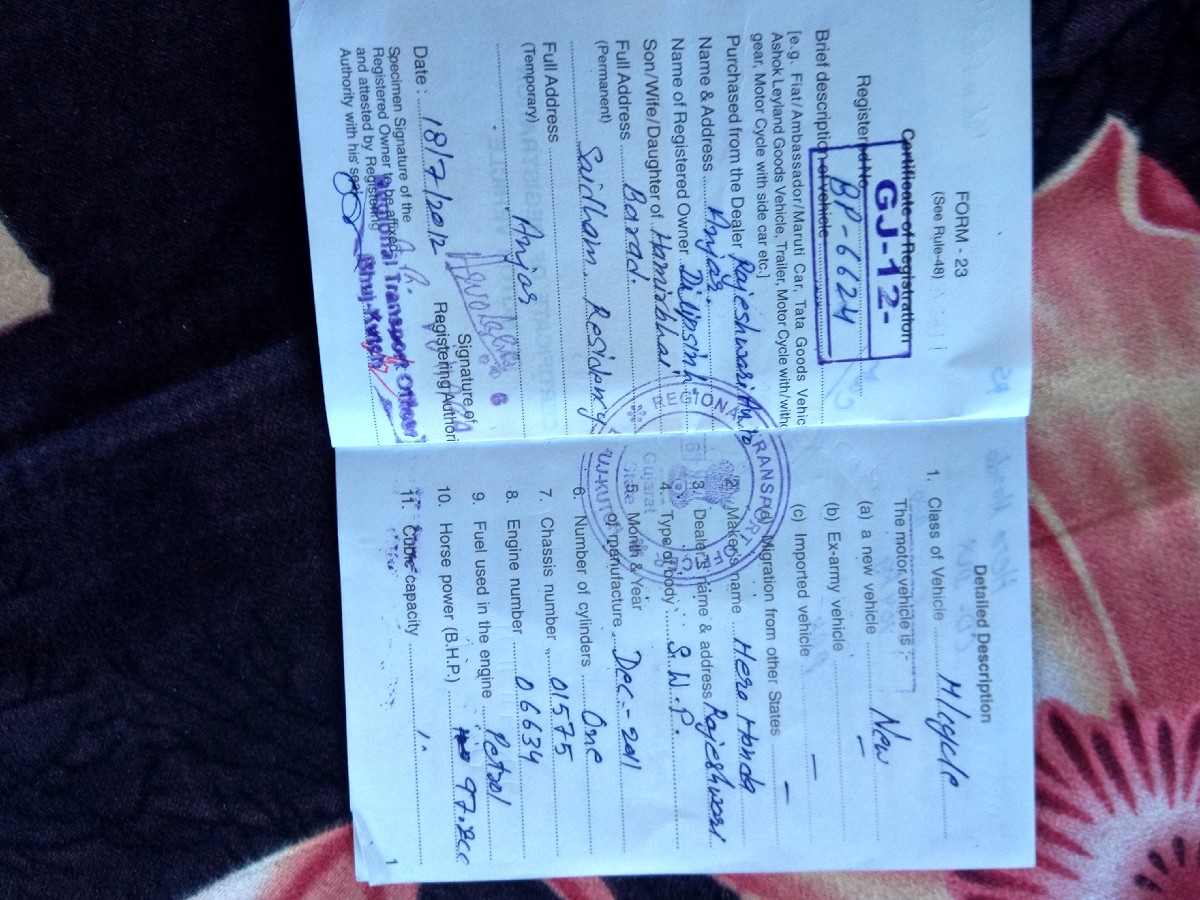 FORM - 23
(See Rule-48)
Certificate of Registration
GJ-12-
Registered No. BP-6624
Brief description of vehicle
[e.g. Fiat/Ambassador/Maruti Car, Tata Goods Vehic
Ashok Leyland Goods Vehicle, Trailer, Motor Cycle with/witho
gear, Motor Cycle with side car etc.]
Purchased from the Dealer Rajeshwari Auto
Name & Address Anjar.
Name of Registered Owner Dilipsinh
Son/Wife/Daughter of Hamirbhai
Full Address Barad.
(Permanent) Saidham Residency
Full Address
(Temporary) Anjar
Date : 18/7/2012
Signature of
Registering Authori
Specimen Signature of the
Registered Owner to be affixed
and attested by Registering
Authority with his seal
Regional Transport Officer
Bhuj-Kutch
REGIONAL TRANSPORT OFFICE
Gujarat
State
Detailed Description
1. Class of Vehicle M/cycle
The motor vehicle is :
(a) a new vehicle New
(b) Ex-army vehicle
(c) Imported vehicle —
(d) Migration from other States —
2. Maker's name Hero Honda
3. Dealer's name & address Rajeshwari
4. Type of body S.W.P.
5. Month & Year
of manufacture Dec-2011
6. Number of cylinders One
7. Chassis number 01575
8. Engine number 06634
9. Fuel used in the engine Petrol
10. Horse power (B.H.P.) 97.2cc
11. Cubic capacity
1